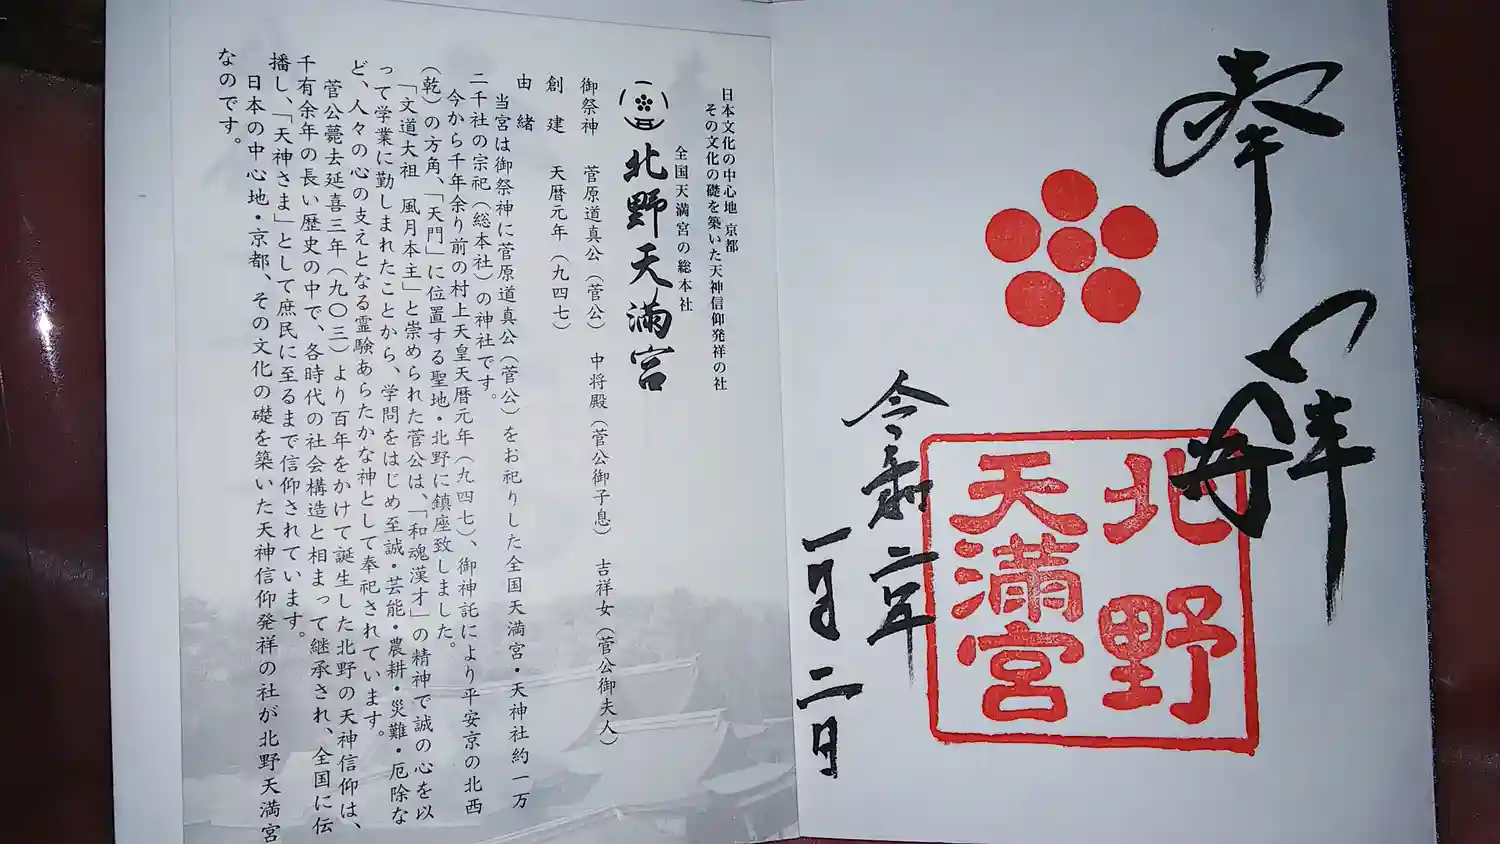 奉拝
北野
天満宮
令和二年
一月二日
日本文化の中心地 京都
その文化の礎を築いた天神信仰発祥の社
全国天満宮の総本社
北野天満宮
御祭神 菅原道真公(菅公) 中将殿(菅公御子息) 吉祥女(菅公御夫人)
創建 天暦元年(九四七)
由緒
当宮は御祭神に菅原道真公(菅公)をお祀りした全国天満宮・天神社約一万
二千社の宗祀(総本社)の神社です。
今から千年余り前の村上天皇天暦元年(九四七)、御神託により平安京の北西
(乾)の方角、「天門」に位置する聖地・北野に鎮座致しました。
「文道大祖 風月本主」と崇められた菅公は、「和魂漢才」の精神で誠の心を以
って学業に勤しまれたことから、学問をはじめ至誠・芸能・農耕・災難・厄除な
ど、人々の心の支えとなる霊験あらたかな神として奉祀されています。
菅公薨去延喜三年(九〇三)より百年をかけて誕生した北野の天神信仰は、
千有余年の長い歴史の中で、各時代の社会構造と相まって継承され、全国に伝
播し、「天神さま」として庶民に至るまで信仰されています。
日本の中心地・京都、その文化の礎を築いた天神信仰発祥の社が北野天満宮
なのです。